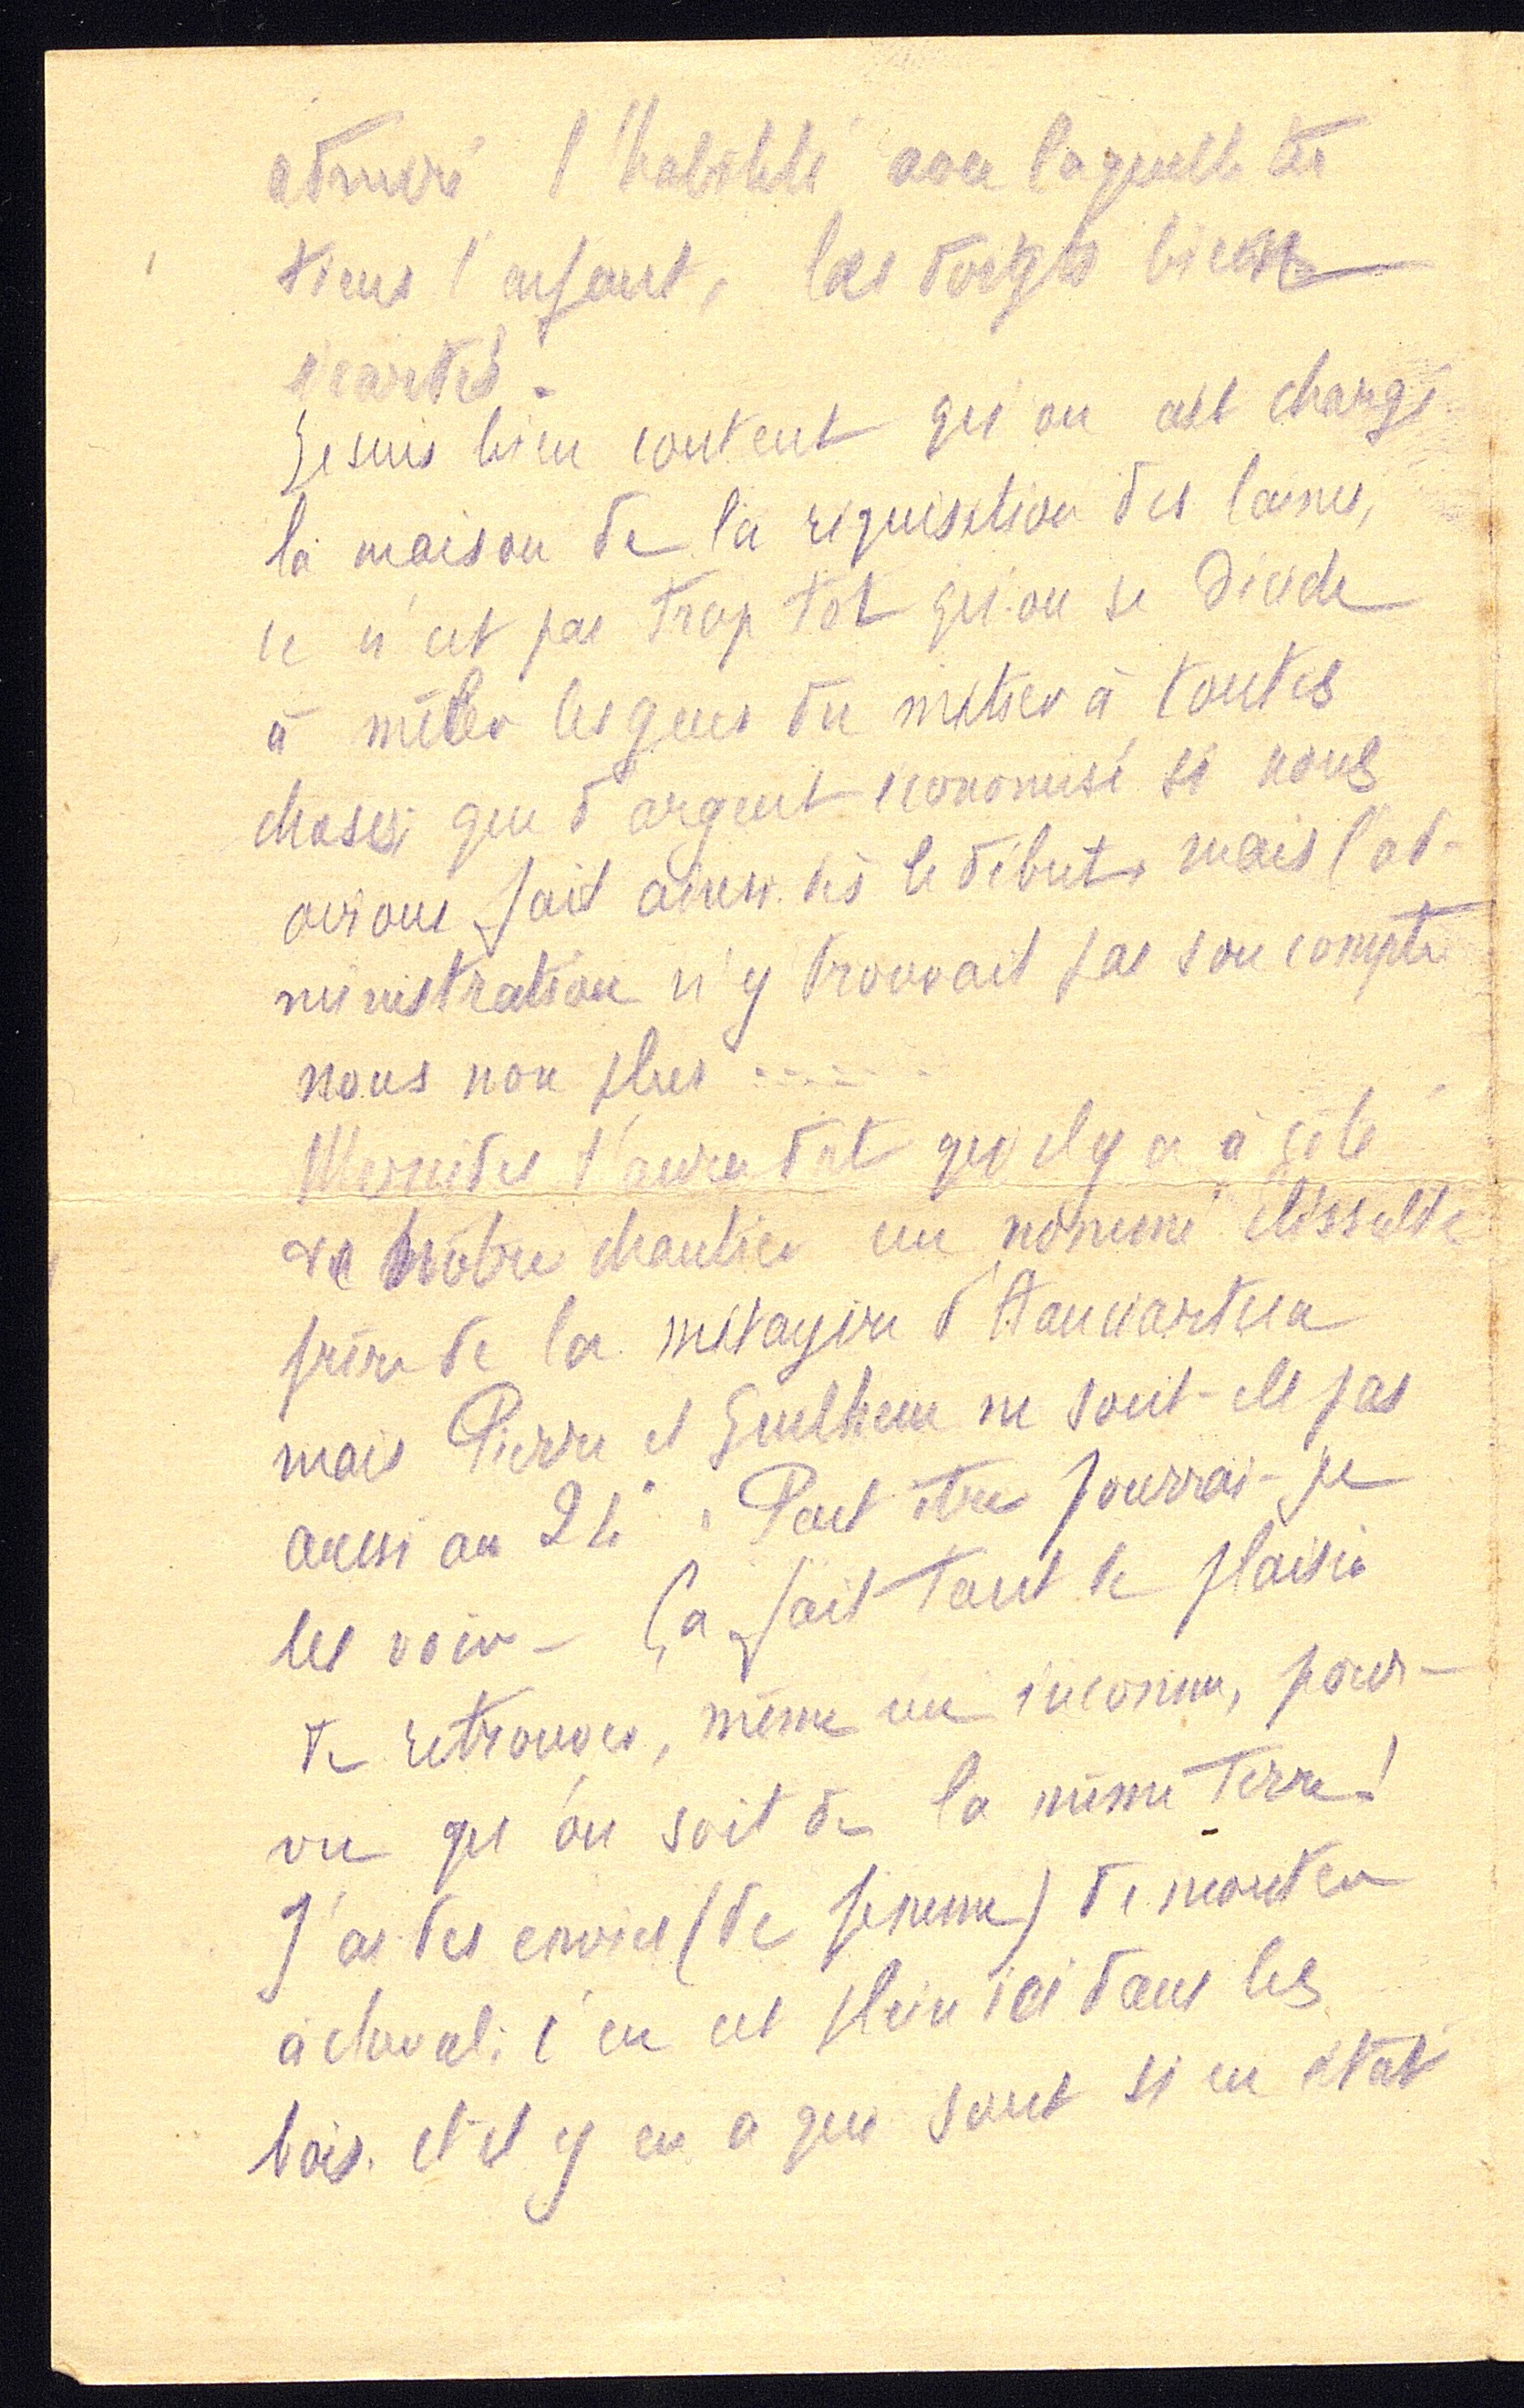 admiré l'habileté avec laquelle tu
tiens l'enfant, les doigts bien
écartés.
Je suis bien content qu'on ait chargé
la maison de la réquisition des laines,
ce n'est pas trop tôt qu'on se décide
à mêler les gens du métier à toutes
choses que d'argent économisé si nous
avions fait ainsi dès le début mais l'ad-
ministration n'y trouvait pas son compte
nous non plus ......
t'aura dit qu'il y a à côté
de notre chantier un nommé
frère de la métayère d'
mais Pierre et Guilhem ne sont-ils pas
aussi au 24e. Peut être pourrai-je
les voir - Ça fait tant de plaisir
de retrouver, même un inconnu, pour-
vu qu'on soit de la même terre!
J'ai des envies (de femme) de monter
à cheval: c'en est plein ici dans les
bois. et il y en a qui sont si en état